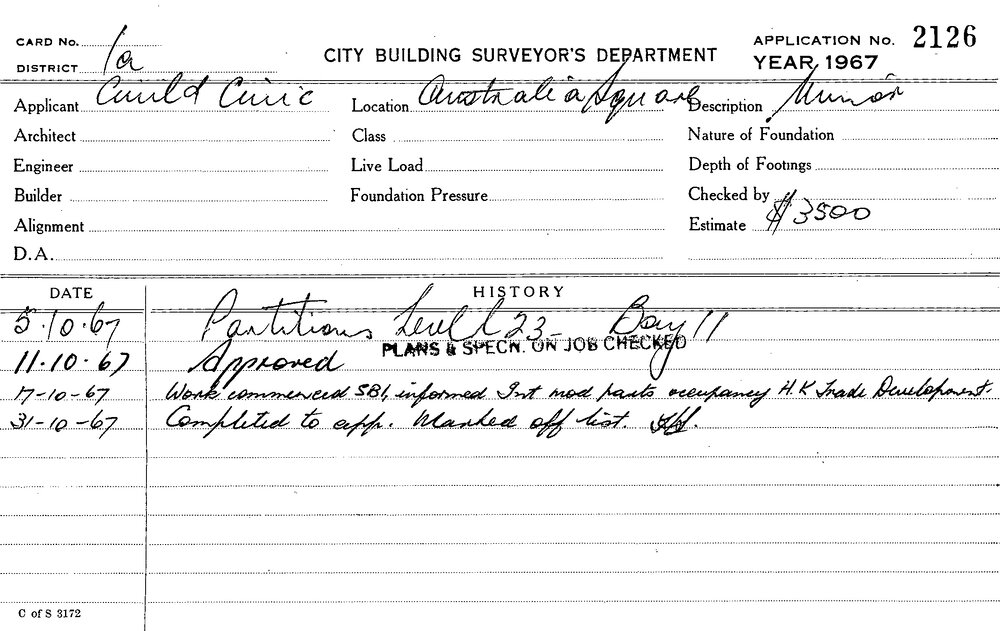 CARD No.
DISTRICT 1a
CITY BUILDING SURVEYOR'S DEPARTMENT
APPLICATION No. 2126
YEAR 1967
Applicant Civil & Civic Location Australia Square Description Minor
Architect Class Nature of Foundation
Engineer Live Load Depth of Footings
Builder Foundation Pressure Checked by
Alignment Estimate $3500
D.A.
DATE HISTORY
5.10.67 Partitions Level 23 Bay 11
PLANS & SPECN. ON JOB CHECKED
11.10.67 Approved
17-10-67 Work commenced SBI, informed Int mod parts occupancy H.K Trade Development.
31-10-67 Completed to app. Marked off list.
C of S 3172